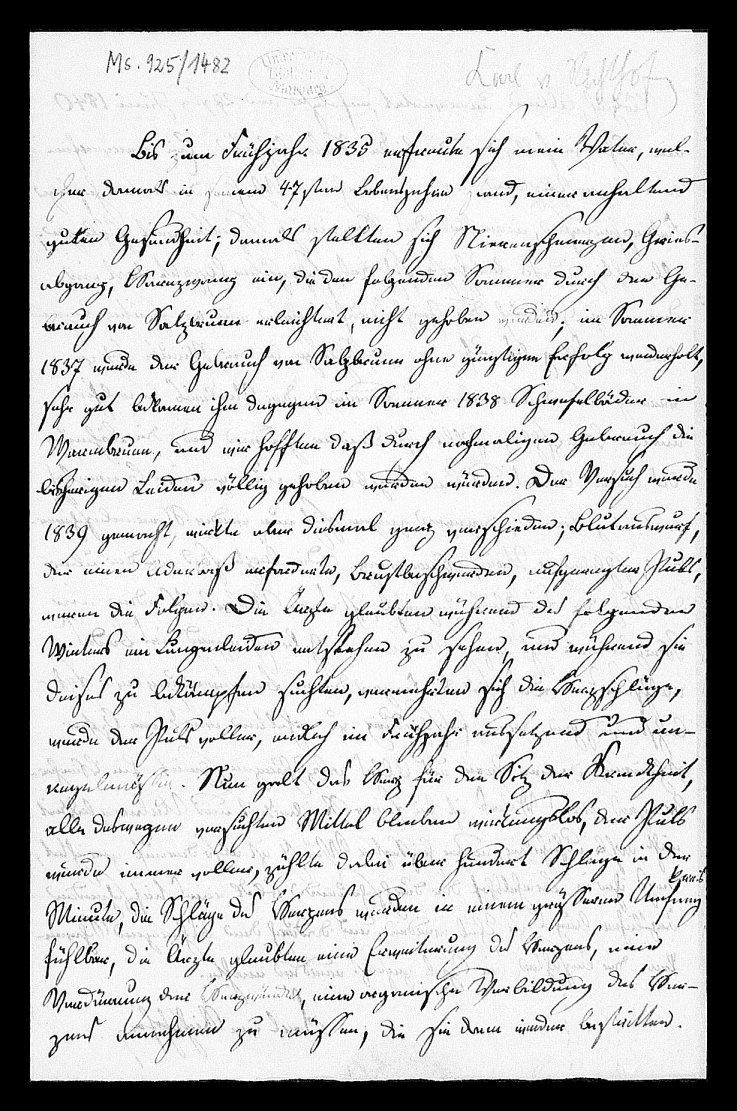 Ms. 925/1482
Karl v
Bis zum Frühjahr 1835 erfreute sich mein Vater, wel-
cher damals in seinem 47sten Lebensjahre stand, einer anhaltend
guten Gesundheit; damals stellten sich Nierenschmerzen, Gries-
abgang, Harnzwang ein, die den folgenden Sommer durch den Ge-
brauch von Salzbrunn erleichtert, nicht gehoben wurden; im Sommer
1837 wurde der Gebrauch von Salzbrunn ohne günstigen Erfolg wiederholt,
sehr gut bekamen ihm dagegen im Sommer 1838 Schwefelbäder in
Warmbrunn, und wir hofften daß durch nochmaligen Gebrauch die
bisherigen Leiden völlig gehoben werden würden. Der Versuch wurde
1839 gemacht, wirkte aber diesmal ganz verschieden; Blutauswurf,
der einen Aderlaß erforderte, Brustbeschwerden, aufgeregter Puls,
waren die Folgen. Die Ärzte glaubten während des folgenden
Winters ein Lungenleiden entstehen zu sehen, und während sie
dieses zu bekämpfen suchten, vermehrten sich die Herzschläge,
wurde der Puls voller, endlich im Frühjahr aussetzend und un-
regelmäßig. Nun galt das Herz für den Sitz der Krankheit,
alle deswegen versuchten Mittel blieben wirkungslos, der Puls
wurde immer voller, zählte dabei über hundert Schläge in der
Minute, die Schläge des Herzens wurden in einem größeren Umkreis
fühlbar, die Ärzte glaubten eine Erweiterung des Herzens, eine
Verdünnung der Herzwände, eine organische Verbildung des Her-
zens annehmen zu müssen, die sie dann wieder bestritten.